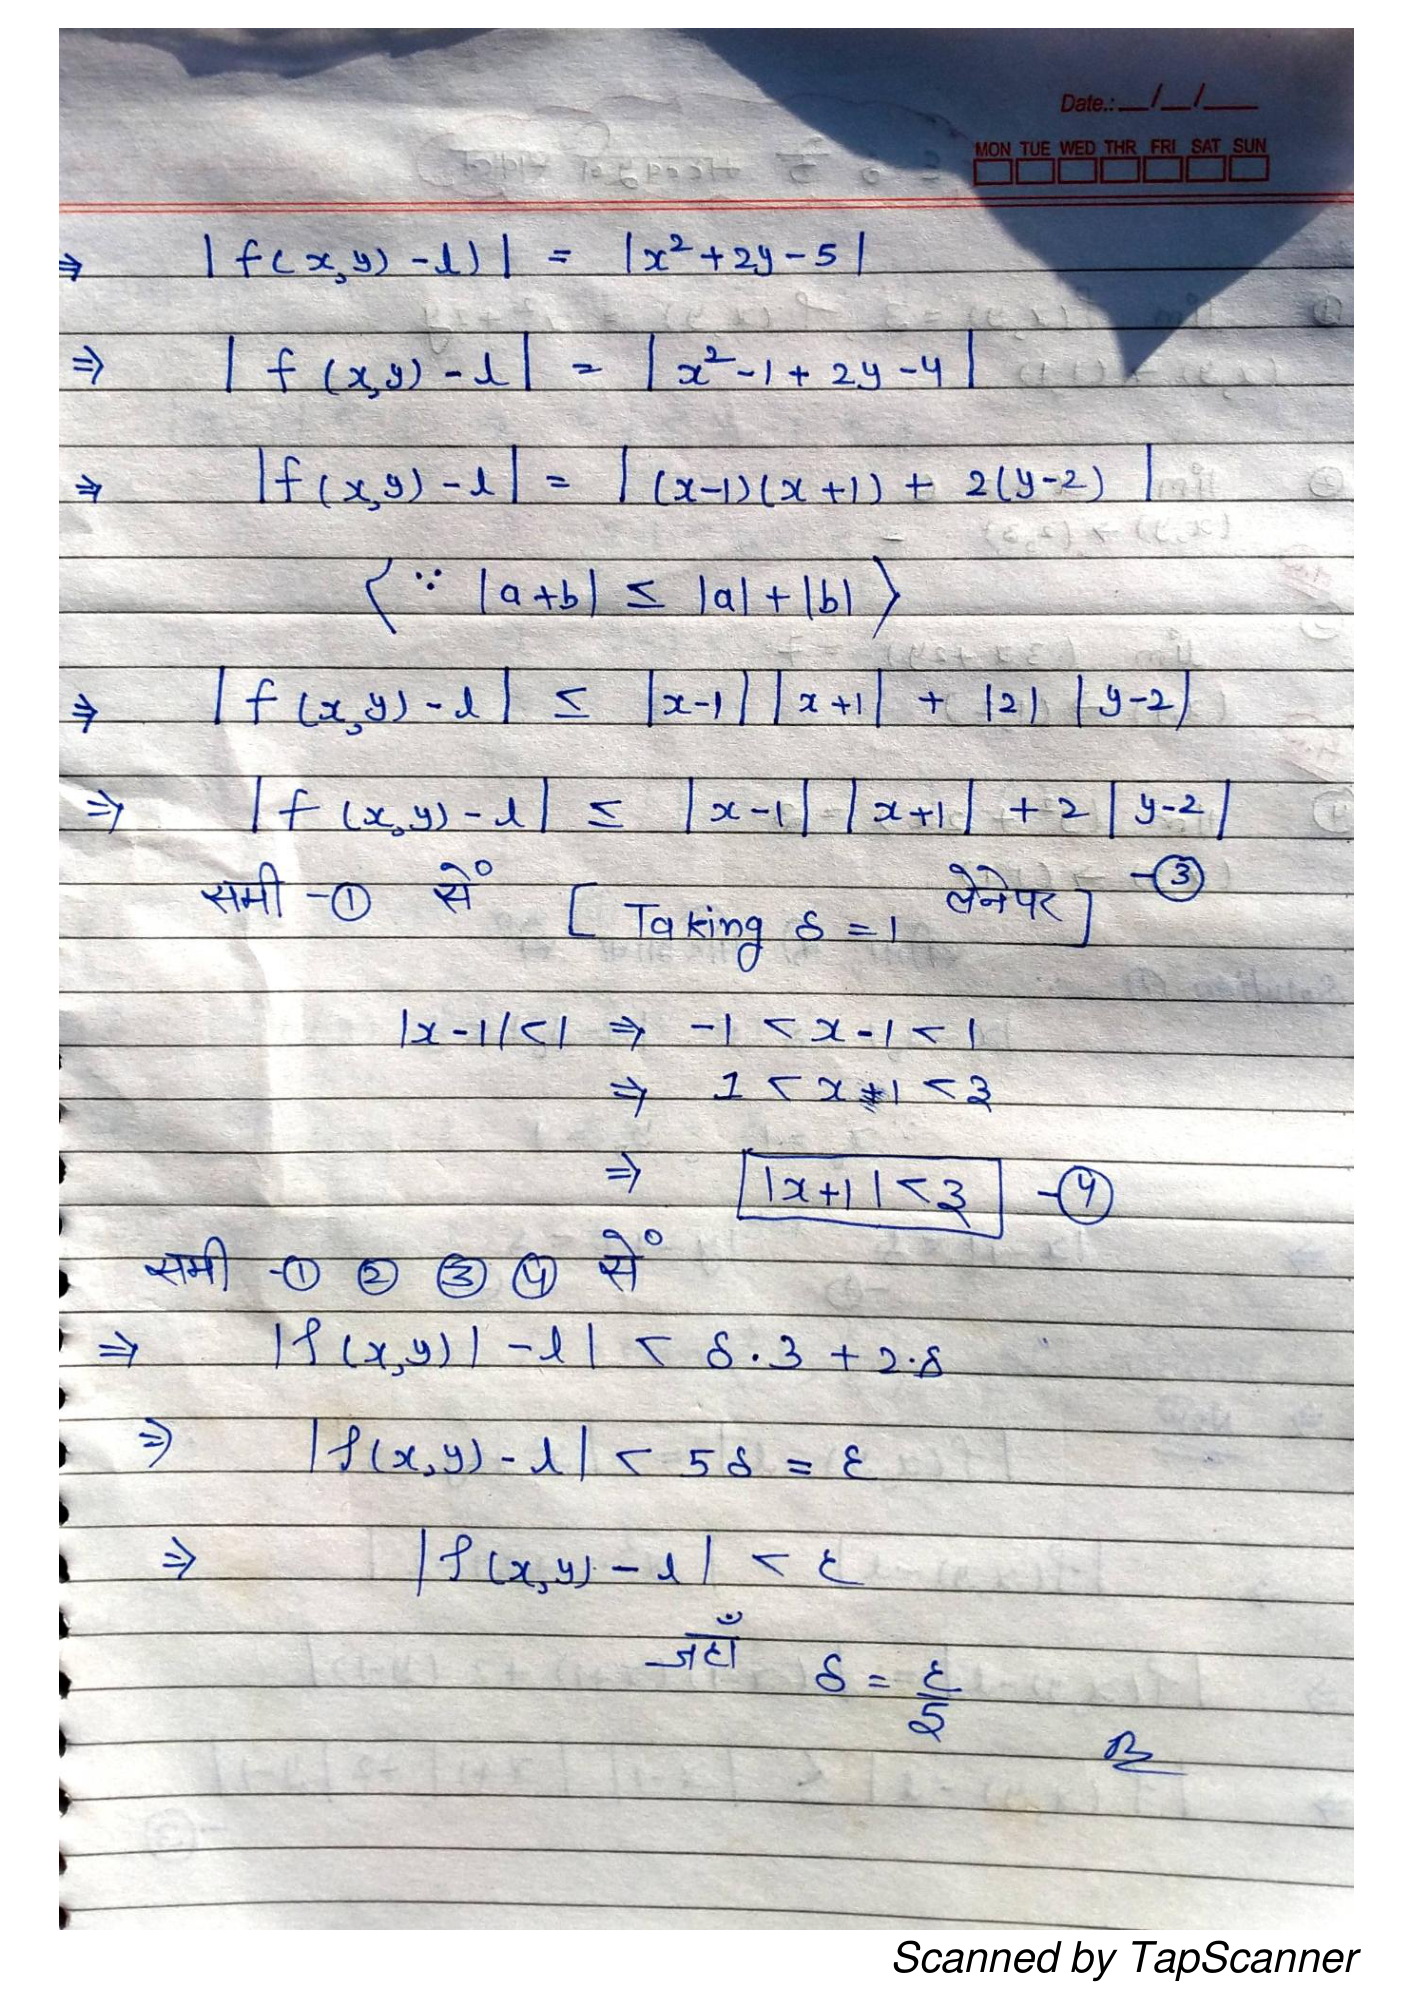 Date.:__/__/___
MON TUE WED THR FRI SAT SUN
⇒ |f(x,y) - l)| = |x² + 2y - 5|
⇒ |f(x,y) - l| = |x² - 1 + 2y - 4|
⇒ |f(x,y) - l| = |(x-1)(x+1) + 2(y-2)|
⟨∵ |a+b| ≤ |a| + |b|⟩
⇒ |f(x,y) - l| ≤ |x-1| |x+1| + |2| |y-2|
⇒ |f(x,y) - l| ≤ |x-1| |x+1| + 2|y-2|
-③
समी -① से० [Taking δ = 1 लेनेपर]
|x-1| < 1 ⇒ -1 < x-1 < 1
⇒ 1 < x+1 < 3
⇒ |x+1| < 3 -④
समी -① ② ③ ④ से०
⇒ |f(x,y)| - l| < δ.3 + 2.δ
⇒ |f(x,y) - l| < 5δ = ε
⇒ |f(x,y) - l| < ε
जहाँ δ = ε/5
Scanned by TapScanner